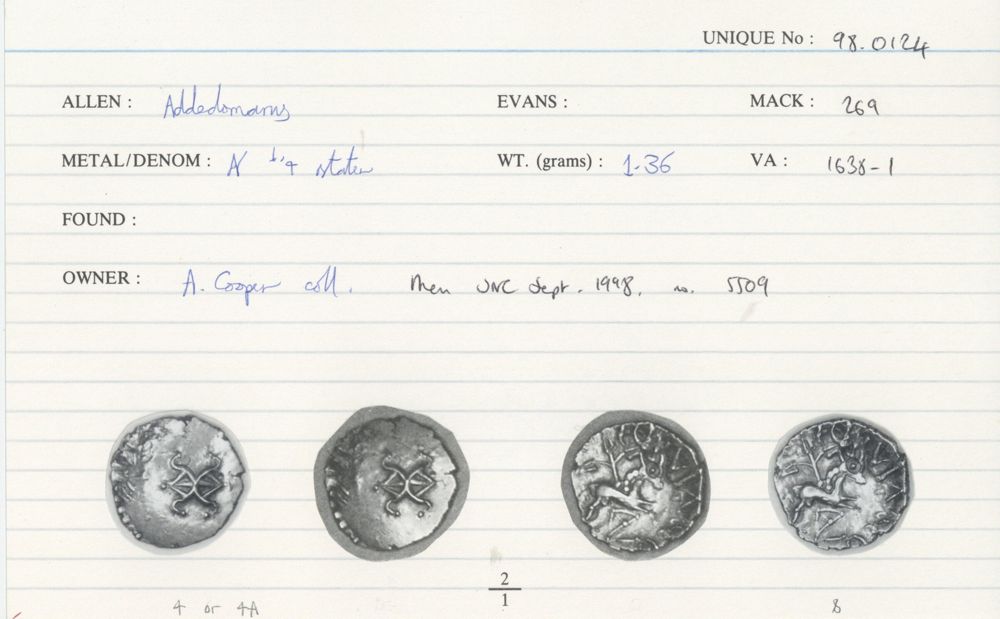 UNIQUE No : 98.0124
ALLEN : Addedomarus EVANS : MACK : 269
METAL/DENOM : N 1/4 stater WT. (grams) : 1.36 VA : 1638-1
FOUND :
OWNER : A. Cooper coll. Then VNC dept. 1998, no. 5509
2
1
4 or 4A 8